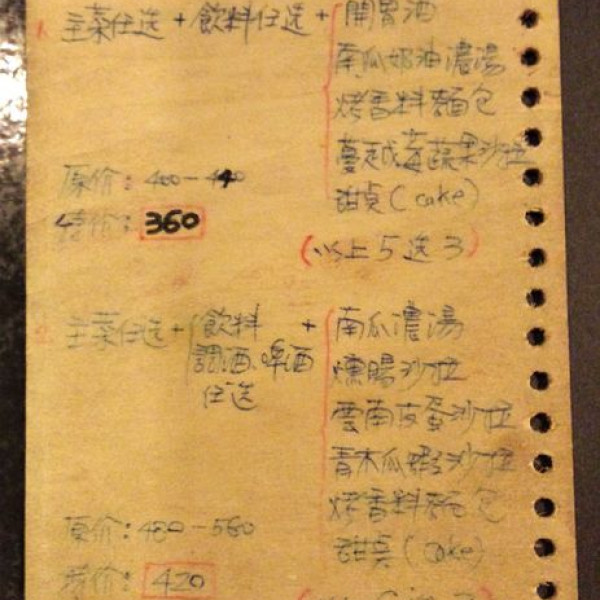 1. 主菜任选 + 飲料任选 + 開胃酒
南瓜奶油濃湯
烤香料麵包
蔓越莓蔬果沙拉
甜桌 (cake)
原价: 400-440
特价: 360
(以上5选3)
主菜任选 + 飲料 + 南瓜濃湯
調酒、啤酒
任选
燻腸沙拉
雲南皮蛋沙拉
青木瓜蝦沙拉
烤香料麵包
甜桌 (cake)
原价: 480-560
特价: 420